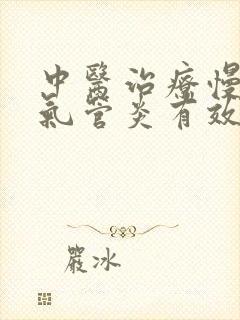 中醫治療慢
氣管炎有效
嚴冰